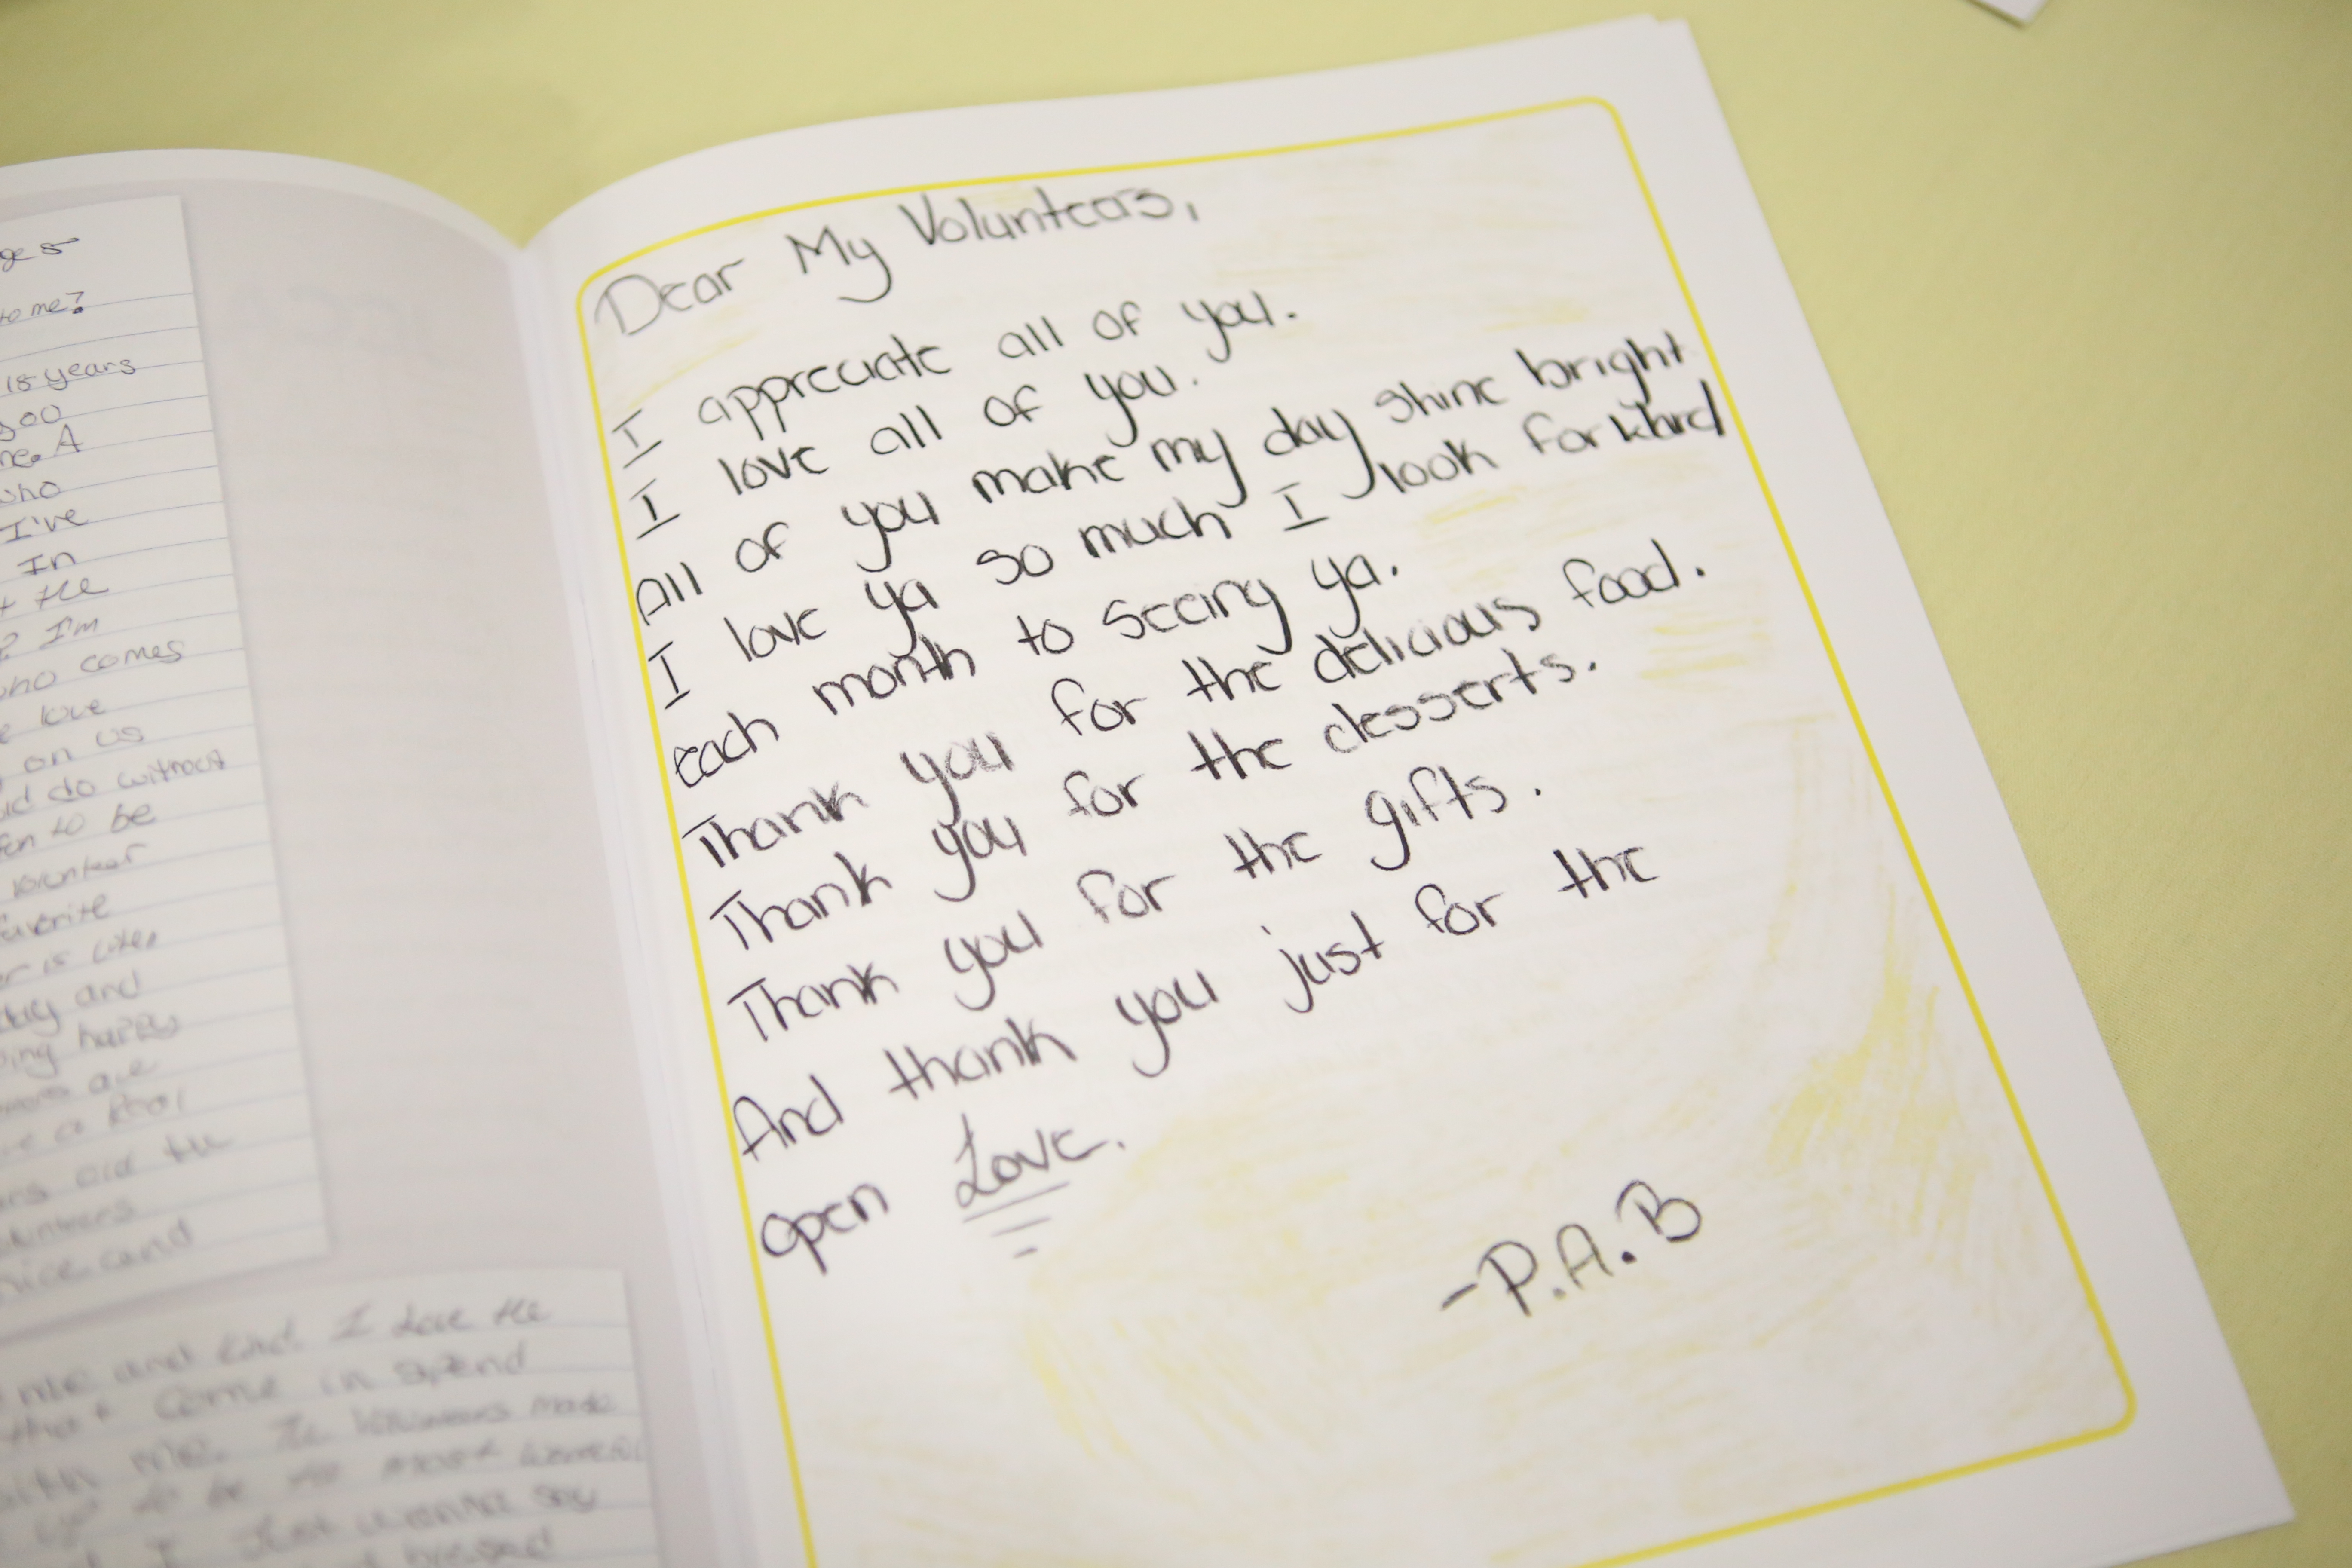 ges
to me?
15 years
you
me. A
who
I've
In
+ the
? I'm
who comes
e love
on us
do without
to be
volunteer
favorite
and
happy
are
a
old the
volunteers
nice and
me and kind. I Love the
that come in spend
with me. The Volunteers made
to be the most
I Just wanna say
blessed
Dear My Volunteers,
I appreciate all of you.
I love all of you.
All of you make my day shine bright
I love ya so much I look forward
each month to seeing ya.
Thank you for the delicious food.
Thank you for the desserts.
Thank you for the gifts.
And thank you just for the
open Love.
-P.A.B